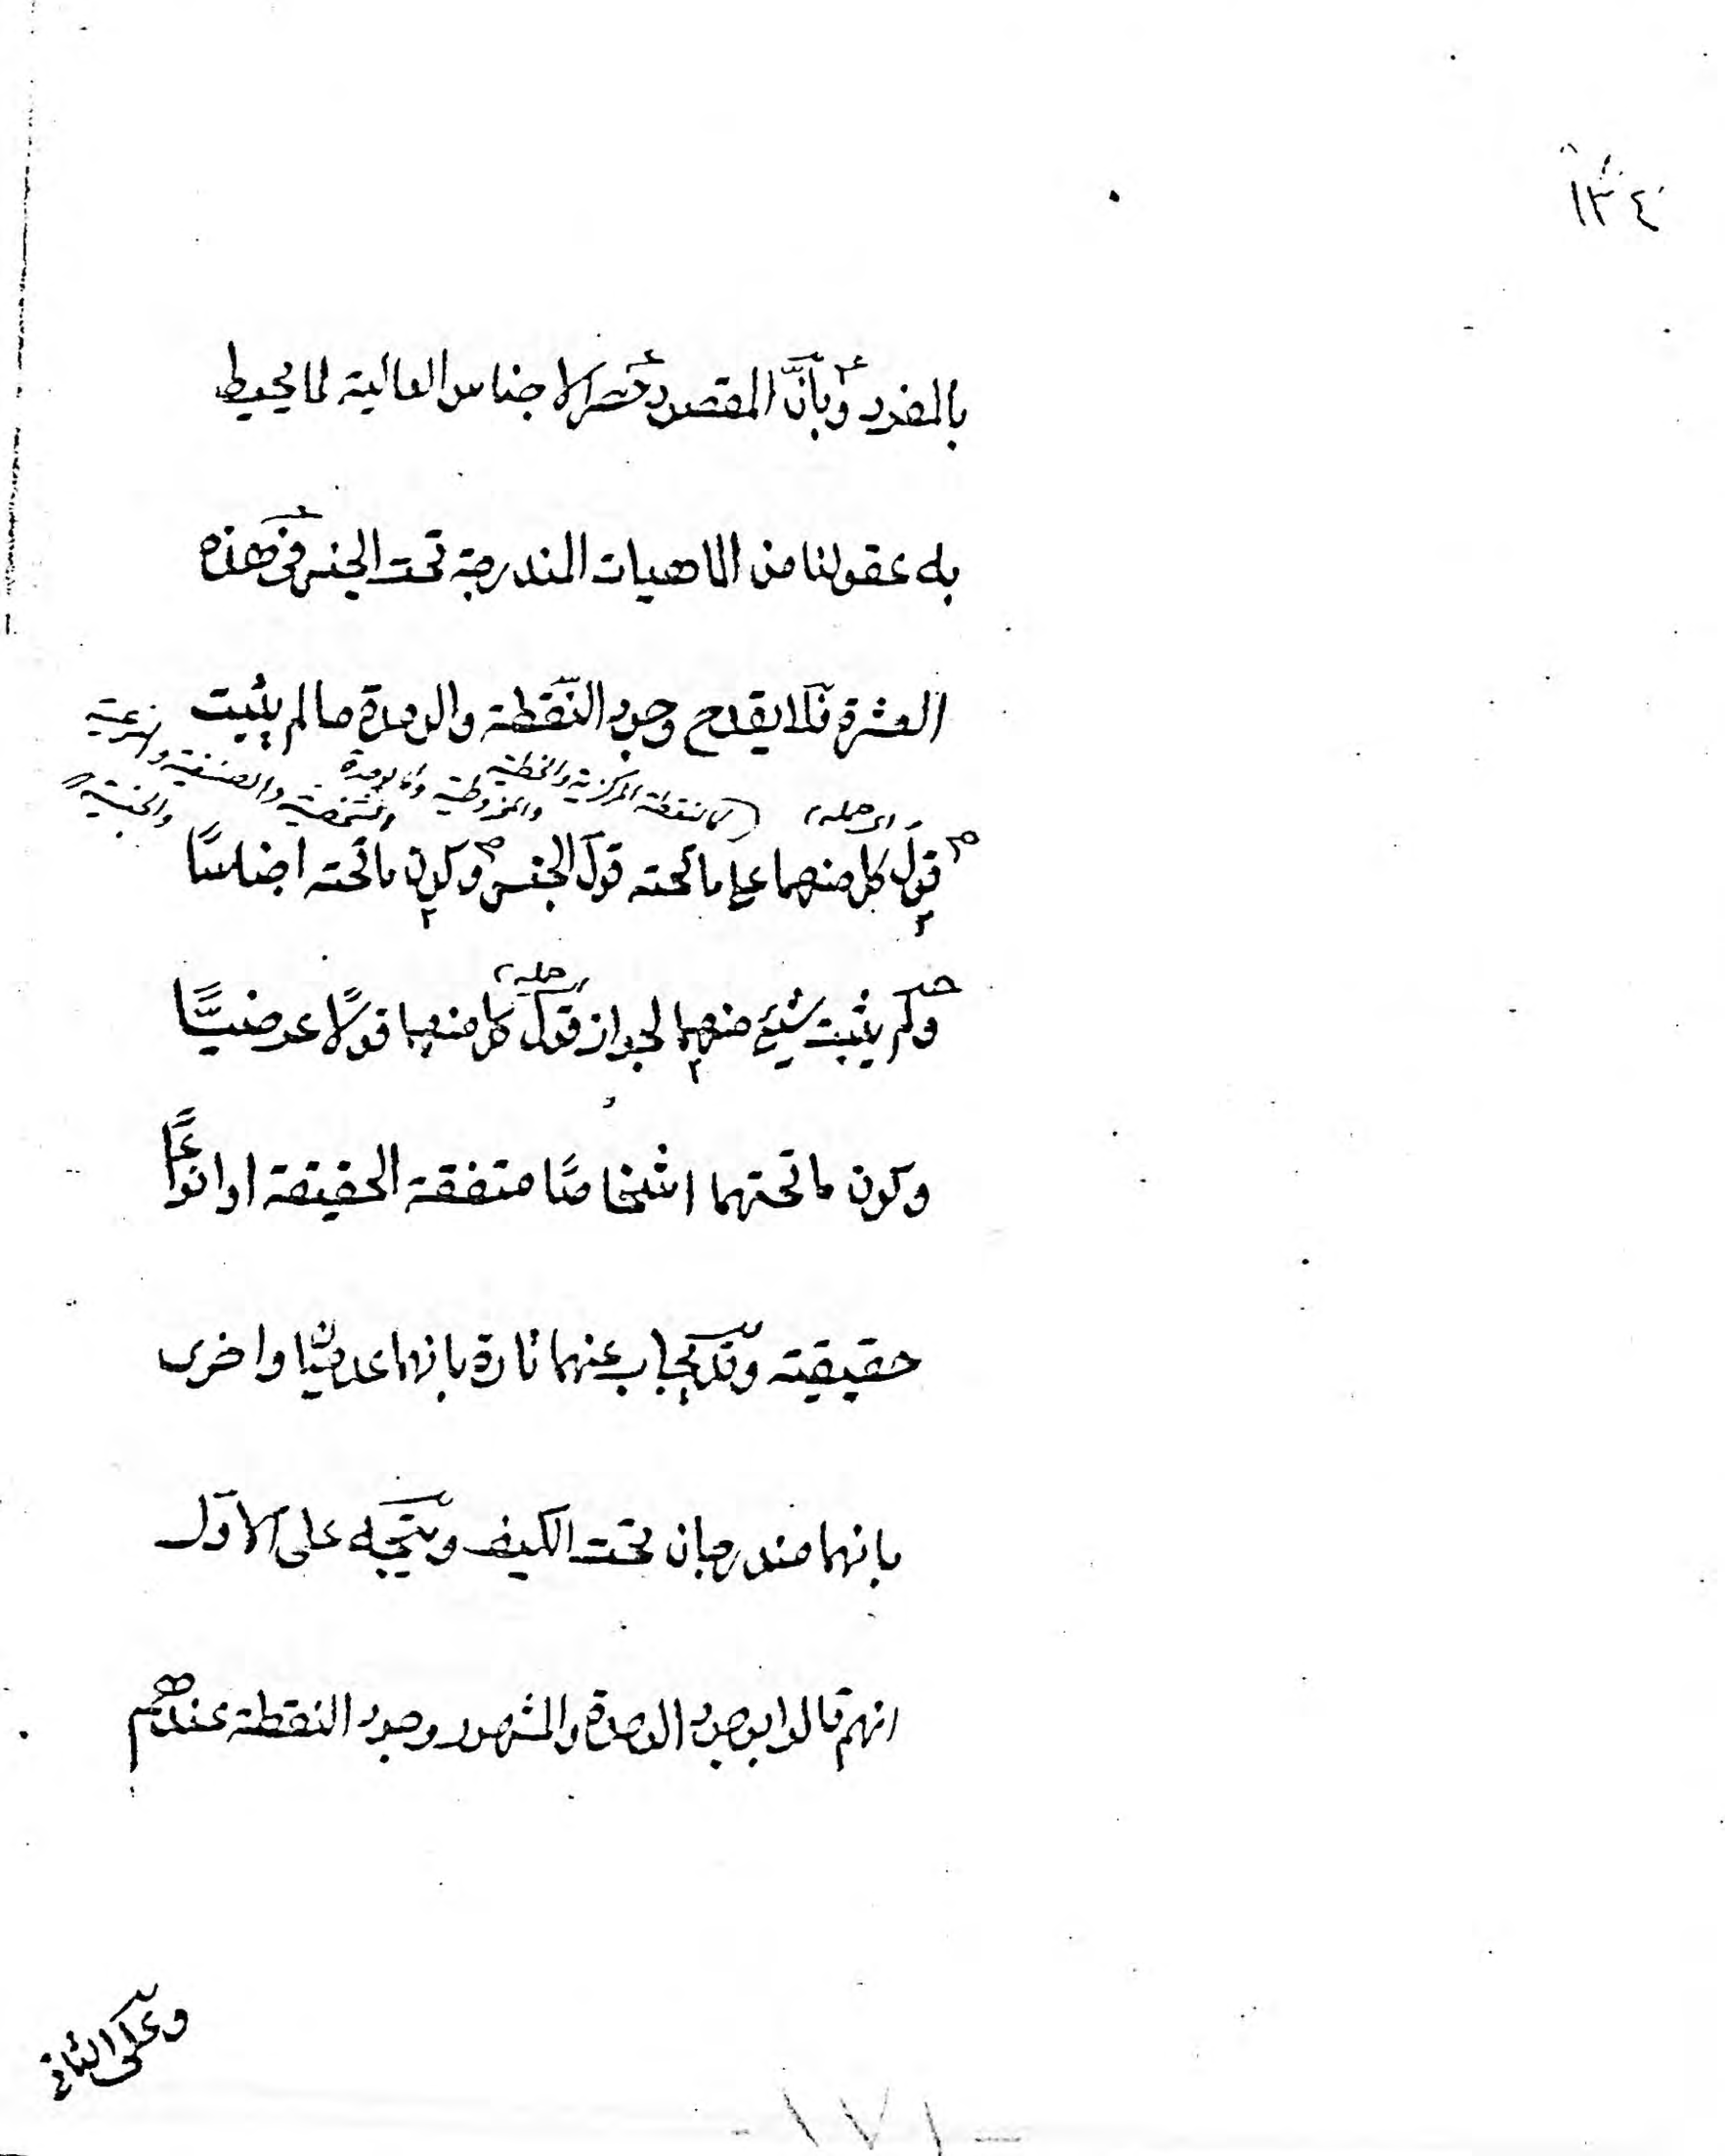 ١٣٤
بالمفرد وبأنّ المقصود حصر الاجناس العالية لما يحيط
به عقولنا من الماهيات المندرجة تحت الجنس في هذه
العشرة فلا يقدح وجود النقطة والوحدة ما لم يثبت
كالنقطة المركزية والخطية والمخروطية وكالوحدة الشخصية والصنفية والنوعية والجنسية
اى حمله
قول كل منهما على ما تحته قول الجنس وكون ما تحته اجناسًا
حمله
ولم يثبت شيئ منهما لجواز قول كل منهما قولًا عرضيًّا
وكون ما تحتهما اشخاصًا متفقة الحقيقة او انواعًا
حقيقية وقد يجاب عنهما تارة بانهما عدميتان واخرى
بانهما مندرجان تحت الكيف ويتجه على الاوّل
انهم قالوا بوجود الوحدة والمشهور وجود النقطة عندهم
وعلى الثاني
- ١٧١ -